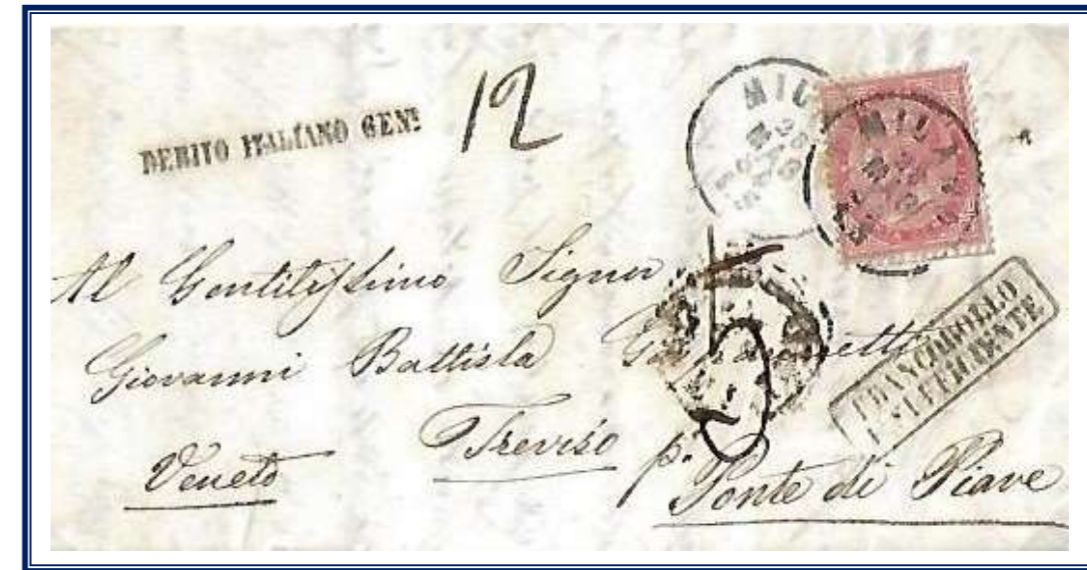 DEBITO ITALIANO GEN.
12
MILA
Al Gentilissimo Signor
Giovanni Battista
FRANCOBOLLO
INSUFFICIENTE
Veneto Treviso p.
Ponte di Piave